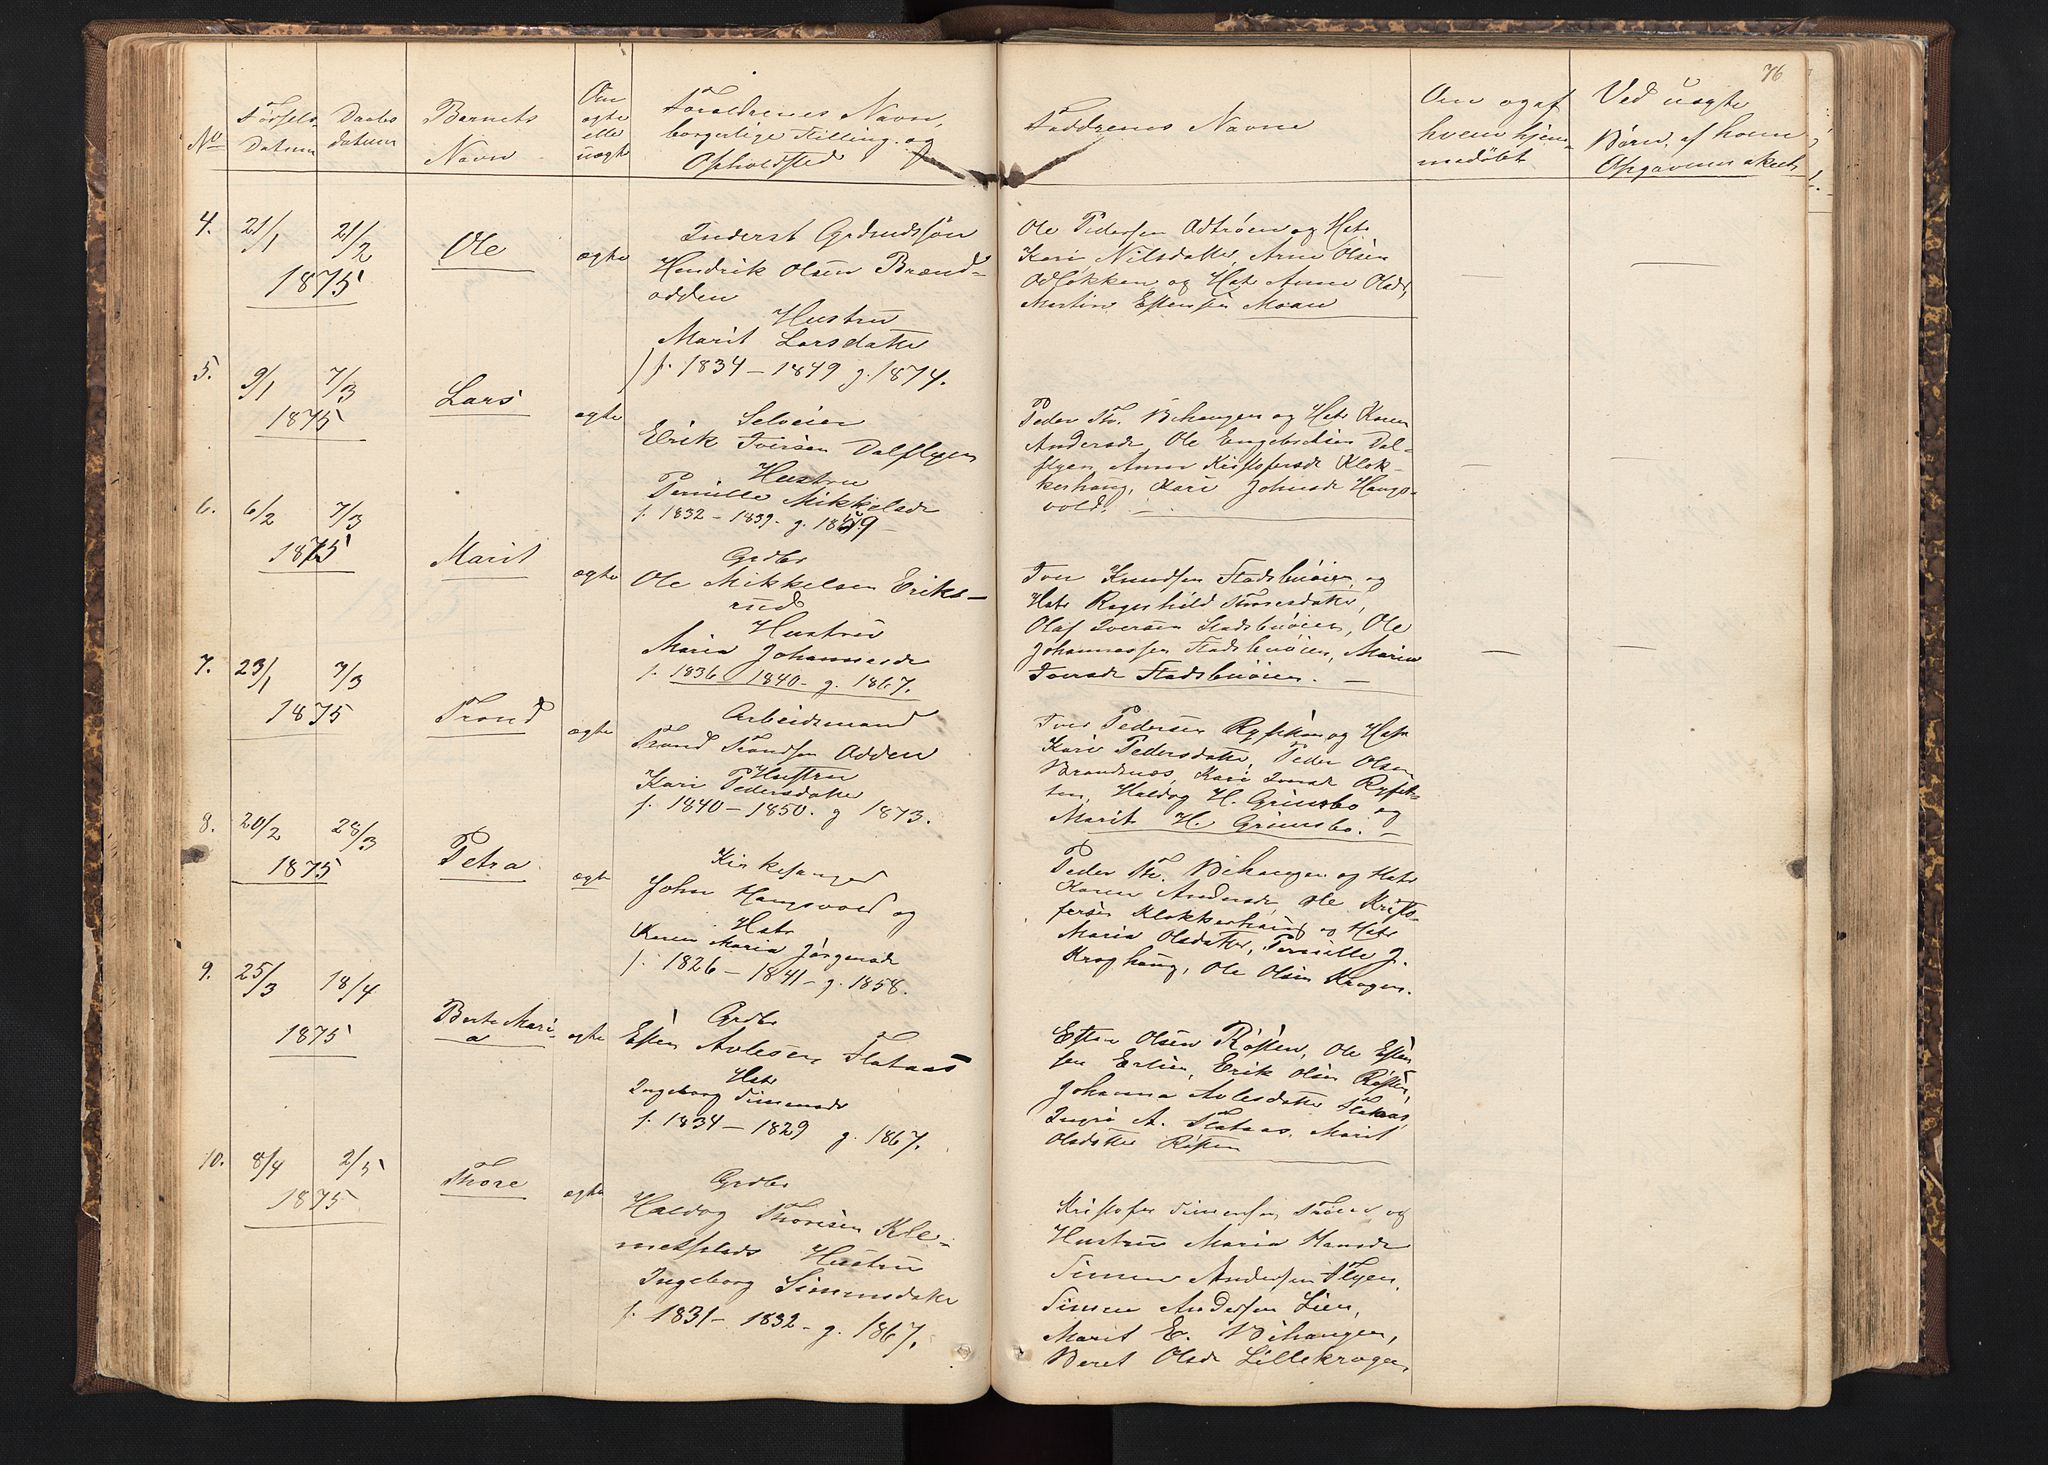 76
No
Fødsels-
Datum
Daabs
datum
Barnets
Navn
Om
ægte
elle
uægte
Forældrenes Navn,
borgerlige Stilling og
Opholdsted
Faddrenes Navne
Om og af
hvem hjem-
medøbt
Ved uægte
Børn, af hvem
Opgaven er skeet,
4.
21/1
21/2
1875
Ole
ægte
Inderst
Hendrik Olsen Brænd-
odden
Hustru
Marit Larsdatte
f. 1834 – 1849 g. 1874.
Ole Pedersen og Hstr
Kari Nilsdatte, Arne Olsen
og Hstr Anne Olsd,
Martin Estensen Moan
5.
9/1
7/3
1875
Lars
ægte
Selveier
Erik Iversen Dalflyen
Hustru
Pernille Mikkelsdr
f. 1832 – 1839. g. 1859
Peder Th. Bihaugen og Hstr Karen
Andersd, Ole Engebretsen Dal-
flyen, Anne Kristofersd Klok-
kerhaug, Kari Johnsd Haugs-
vold. –
6.
6/2
7/3
1875
Marit
ægte
Grdbr
Ole Mikkelsen Eriks-
rud
Hustru
Maria Johannesd
f. 1836 1840 g. 1867.
Iver Knudsen Stadsbuøien, og
Hstr Ragnhild Simensdatte,
Olaf Iversen Stadsbuøien, Ole
Johannessen Stadsbuøien, Maria
Iversd Stadsbuøien. –
7.
23/1
7/3
1875
Trond
ægte
Arbeidsmand
Trond Trondsen Odden
Hustru
Kari Pedersdatte
f. 1840 – 1850. g 1873.
Iver Pedersen og Hstr
Kari Pedersdatte, Peder Olsen
Brandnæs, Kari
Haldog H. Grimsbo og
Marit H. Grimsbo. –
8.
20/2
28/3
1875
Petra
ægte
Kirkesanger
John Haugsvold og
Hstr
Karen Maria Jørgensd
f. 1826 – 1841 – g. 1858.
Peder Th. Bihaugen og Hstr
Karen Andersd, Ole Kristo-
fersen Klokkerhaug og Hstr
Maria Olsdatte, Pernille J.
Kroghaug, Ole Olsen Krogen.
9.
25/3
18/4
1875
Berte Mari-
a
ægte
Grdbr
Esten Avlesen Flataas
Hstr
Ingeborg Simensd
f. 1834 – 1829 g. 1867.
Esten Olsen Røsten, Ole Esten
sen Erlien, Erik Olsen Røsten,
Johanna Avlesdatte Flataas,
Ingri A. Flataas, Marit
Olsdatte Røsten
10.
8/4
2/5
1875
Thore
ægte
Grdbr
Haldog Thoresen Kle-
metsplads Hustru
Ingeborg Simensdatte
f. 1831 – 1832 – g. 1867.
Kristofer Simensen Trøen og
Hustru Maria Hansd
Simen Andersen Flyen,
Simen Andersen Lien,
Marit E. Bihaugen,
Beret Olsd Lillekrogen,